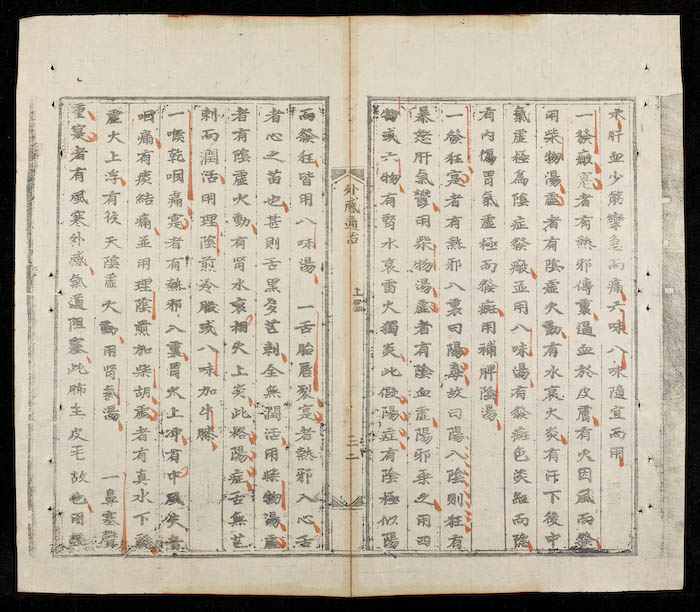 求肝血少筋攣急而痛六味八味隨宜而用
一發癍寔者有熱邪傳裏逼血於皮膚有火因風而發
用柴物湯虛者有陰虛火動有水衰火炎有汗下後中
氣虛極為陰症發癍並用八味湯有發癍色淡紅而隱
有內傷胃氣虛極而發癍用補脾陰湯
一發狂寔者有熱邪入裏曰陽毒故曰陽入陰則狂有
暴怒肝氣鬱用柴物湯虛者有陰血虛陽邪乘之用四
物或六物有腎水衰雷火獨炎此假陽症有陰極似陽
外感通治
上
二二
而發狂皆用八味湯 一舌胎唇裂寔者熱邪入心舌
者心之苗也甚則舌黑多芒刺全無潤活用柴物湯虛
者有陰虛火動有腎水衰相火上炎此格陽症舌無芒
刺而潤活用理陰煎冷服或八味加牛膝
一喉乾咽痛寔者有熱邪入裏胃火上冲有中風矣者
咽痛有痰結痛並用理陰煎加柴胡虛者有真水下虧
虛火上浮有後天陰虛火動用腎氣湯 一鼻塞聲
重寔者有風寒外感氣道阻塞此肺主皮毛故也用